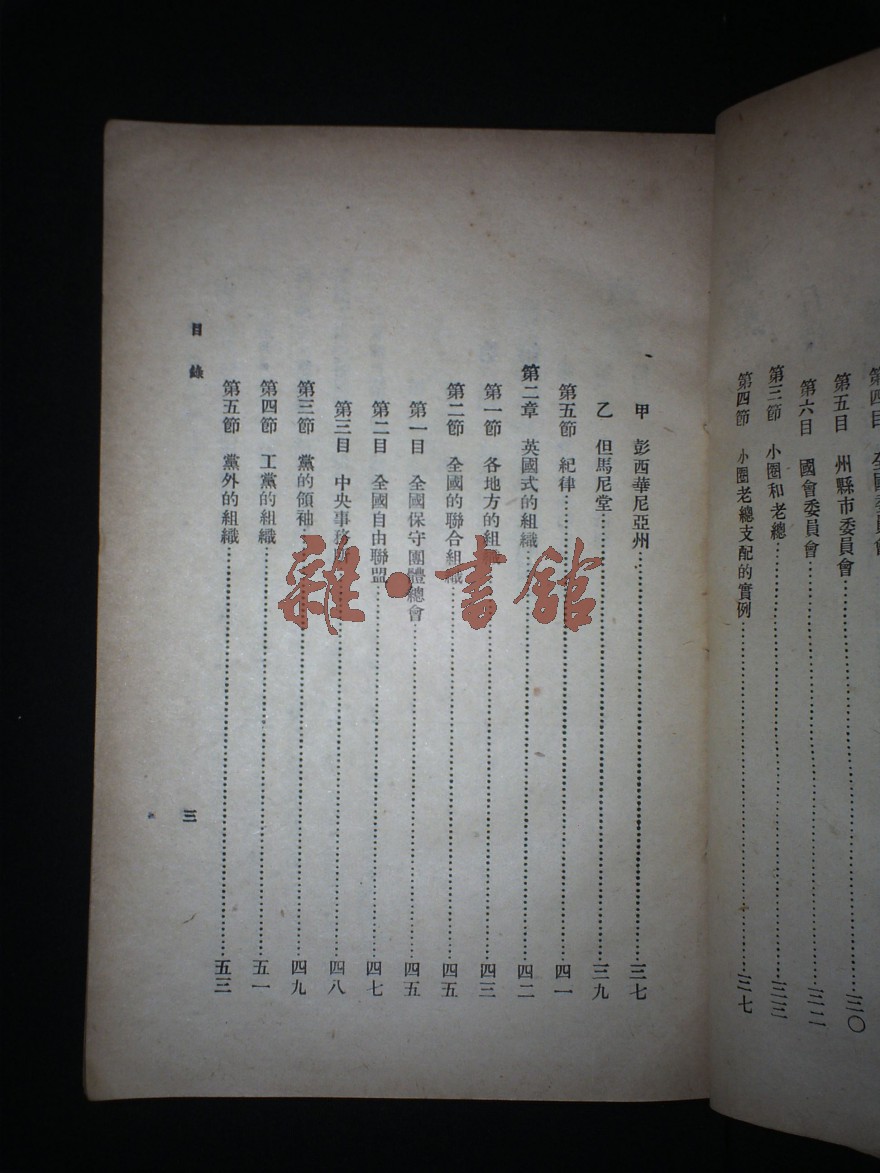 第五目 州縣市委員會……三〇
第六目 國會委員會……三二
第三節 小圈和老總……三三
第四節 小圈老總支配的實例……三七
甲 彭西華尼亞州……三七
乙 但馬尼堂……三九
第五節 紀律……四一
第二章 英國式的組織……四二
第一節 各地方的組織……四三
第二節 全國的聯合組織……四五
第一目 全國保守團體總會……四五
第二目 全國自由聯盟……四七
第三目 中央事務所……四八
第三節 黨的領袖……四九
第四節 工黨的組織……五一
第五節 黨外的組織……五三
目錄
三
雜·書館